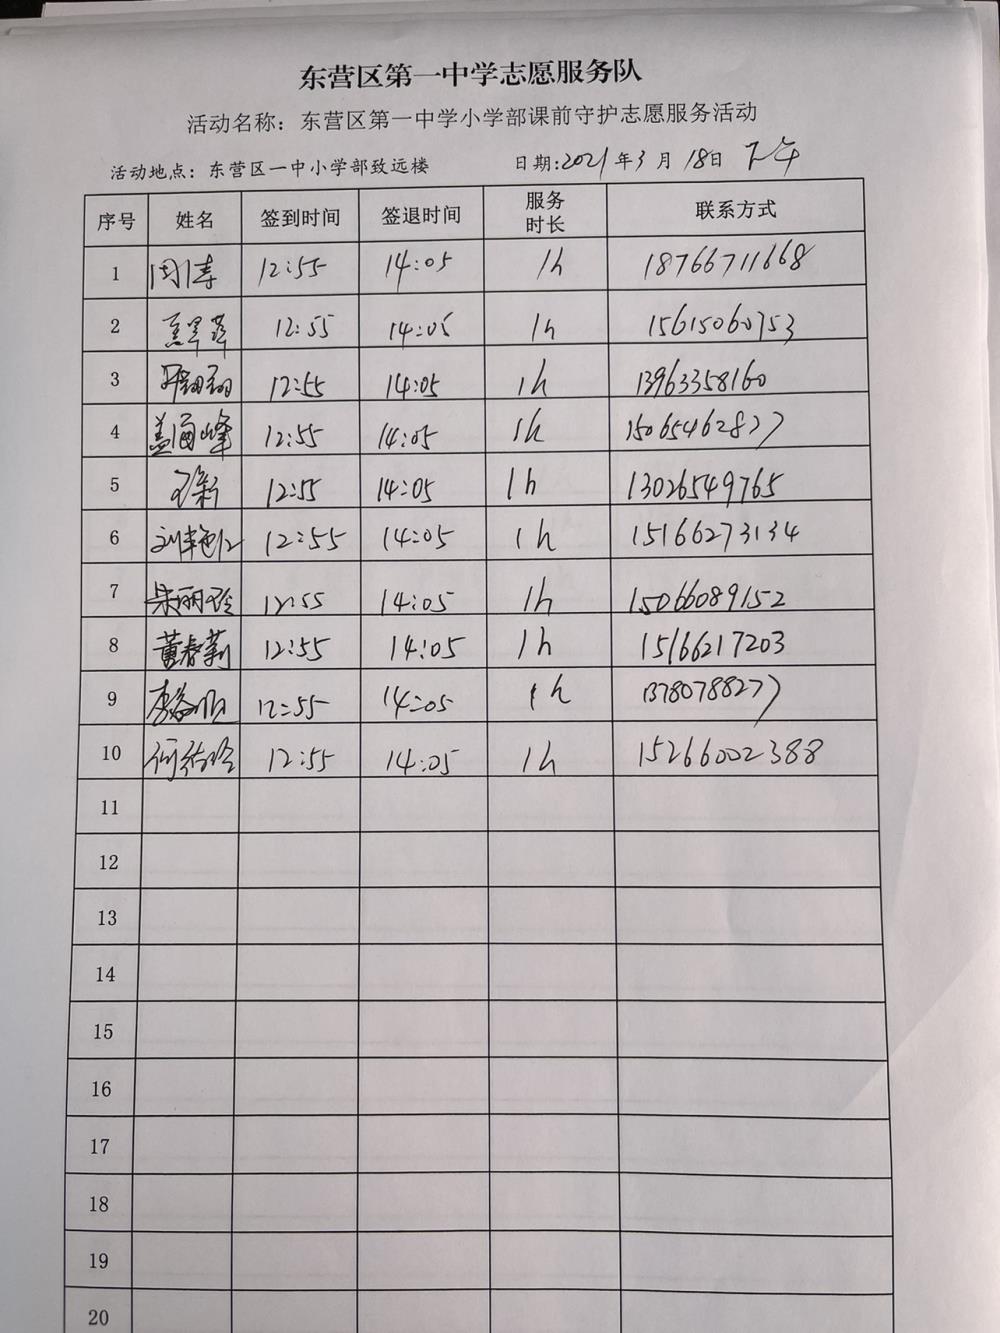 东营区第一中学志愿服务队
活动名称：东营区第一中学小学部课前守护志愿服务活动
活动地点：东营区一中小学部致远楼 日期:2021年3月18日 下午
序号 姓名 签到时间 签退时间 服务时长 联系方式
1 周涛 12:55 14:05 1h 18766711668
2 12:55 14:05 1h 15615060753
3 12:55 14:05 1h 13963358160
4 盖海峰 12:55 14:05 1h 15065462877
5 12:55 14:05 1h 13026549765
6 刘艳红 12:55 14:05 1h 15166273134
7 朱丽玲 12:55 14:05 1h 15066089152
8 董春莉 12:55 14:05 1h 15166217203
9 12:55 14:05 1h 13780788277
10 12:55 14:05 1h 15266002388
11
12
13
14
15
16
17
18
19
20